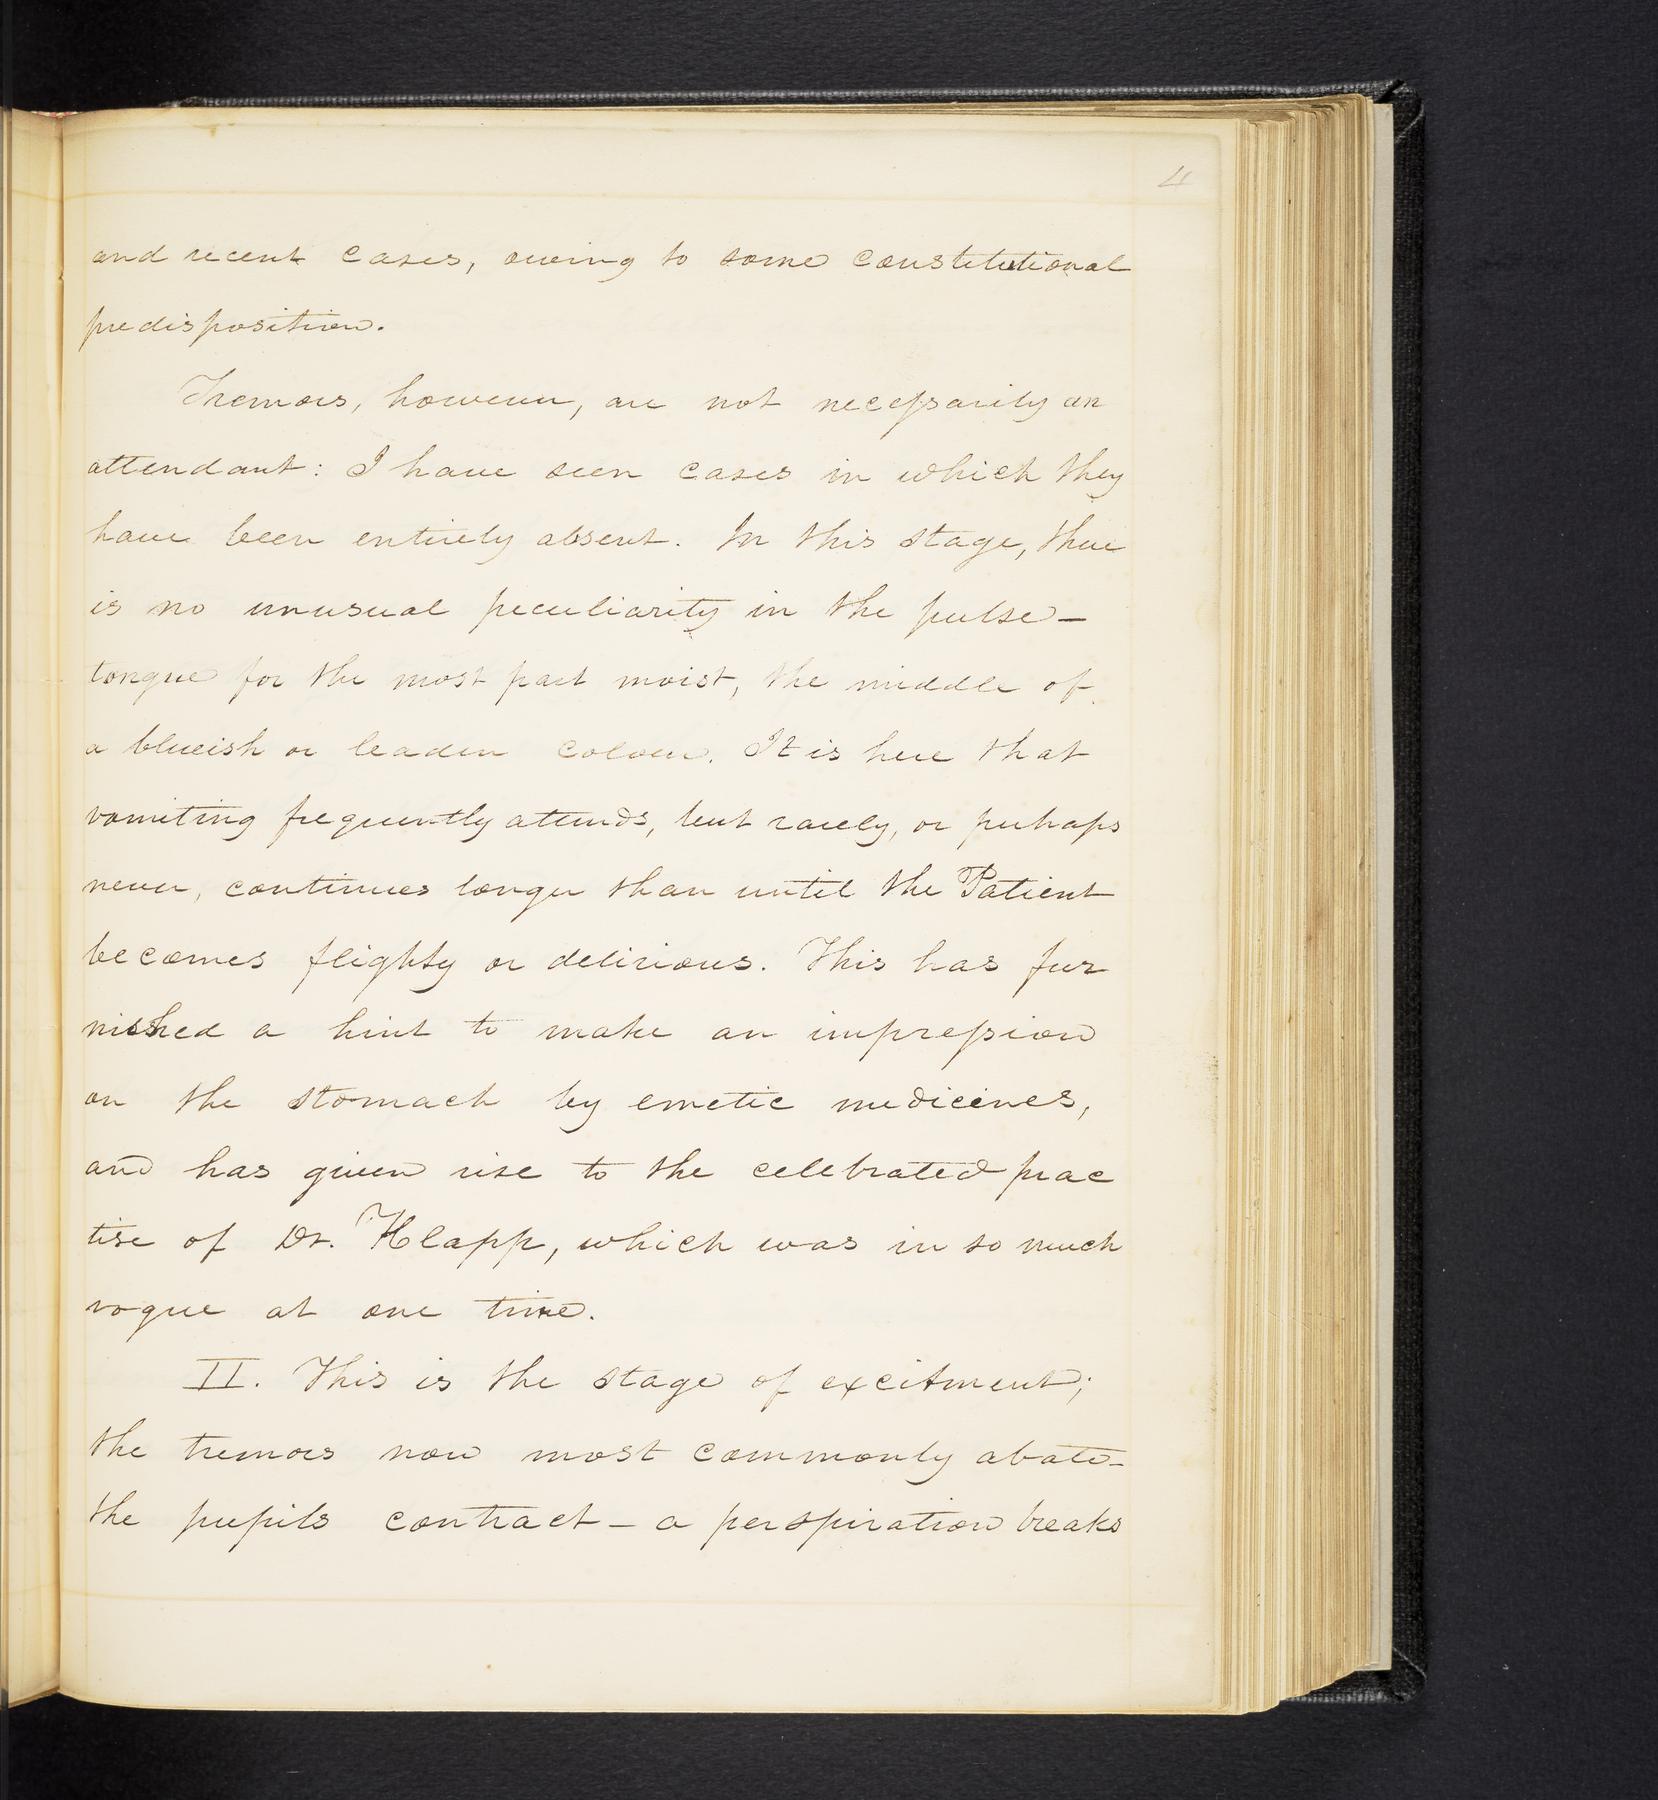 4
and recent cases, owing to some constitutional
predisposition.
Tremors, however, are not necessarily an
attendant: I have seen cases in which they
have been entirely absent. In this stage, there
is no unusual peculiarity in the pulse—
tongue for the most part moist, the middle of
a blueish or leaden colour. It is here that
vomiting frequently attends, but rarely, or perhaps
never, continues longer than until the Patient
becomes flighty or delirious. This has fur
nished a hint to make an impression
on the stomach by emetic medicines,
and has given rise to the celebrated prac
tise of Dr. Klapp, which was in so much
vogue at one time.
II. This is the stage of excitment;
the tremors now most commonly abate—
the pupils contract — a perspiration breaks